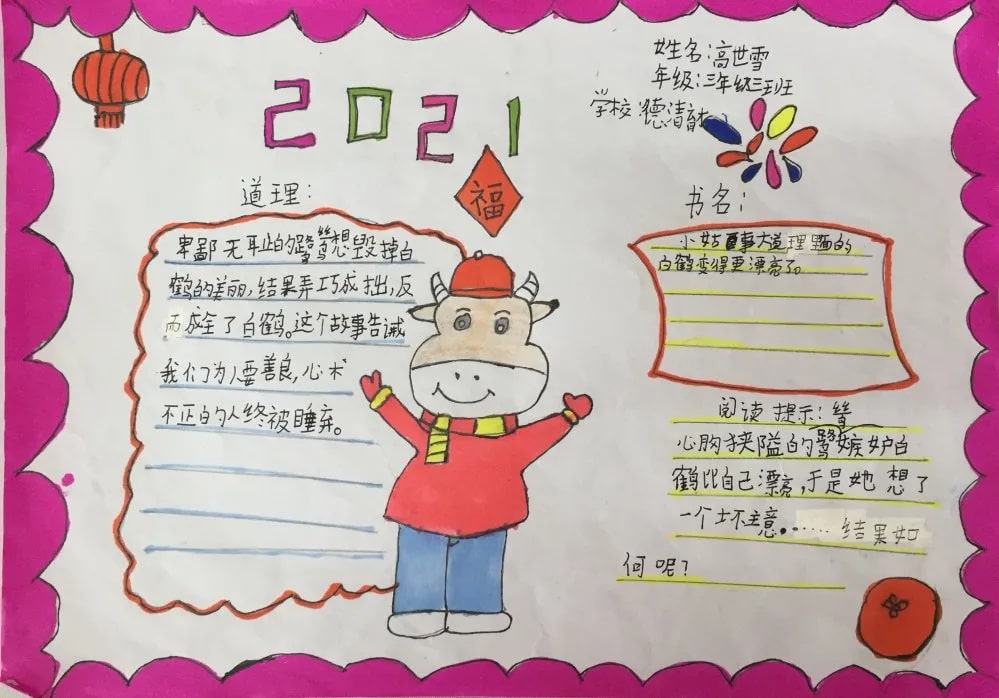 2021
姓名:高世雪
年级:三年级三班
学校:德清
福
道理:
卑鄙无耻的鹭鸶想毁掉白
鹤的美丽,结果弄巧成拙,反
而成全了白鹤。这个故事告诫
我们为人要善良,心术
不正的人终被唾弃。
书名:
小故事大道理 的
白鹤变得更漂亮了。
阅读提示:
心胸狭隘的鹭鸶嫉妒白
鹤比自己漂亮,于是她想了
一个坏主意。……结果如
何呢?